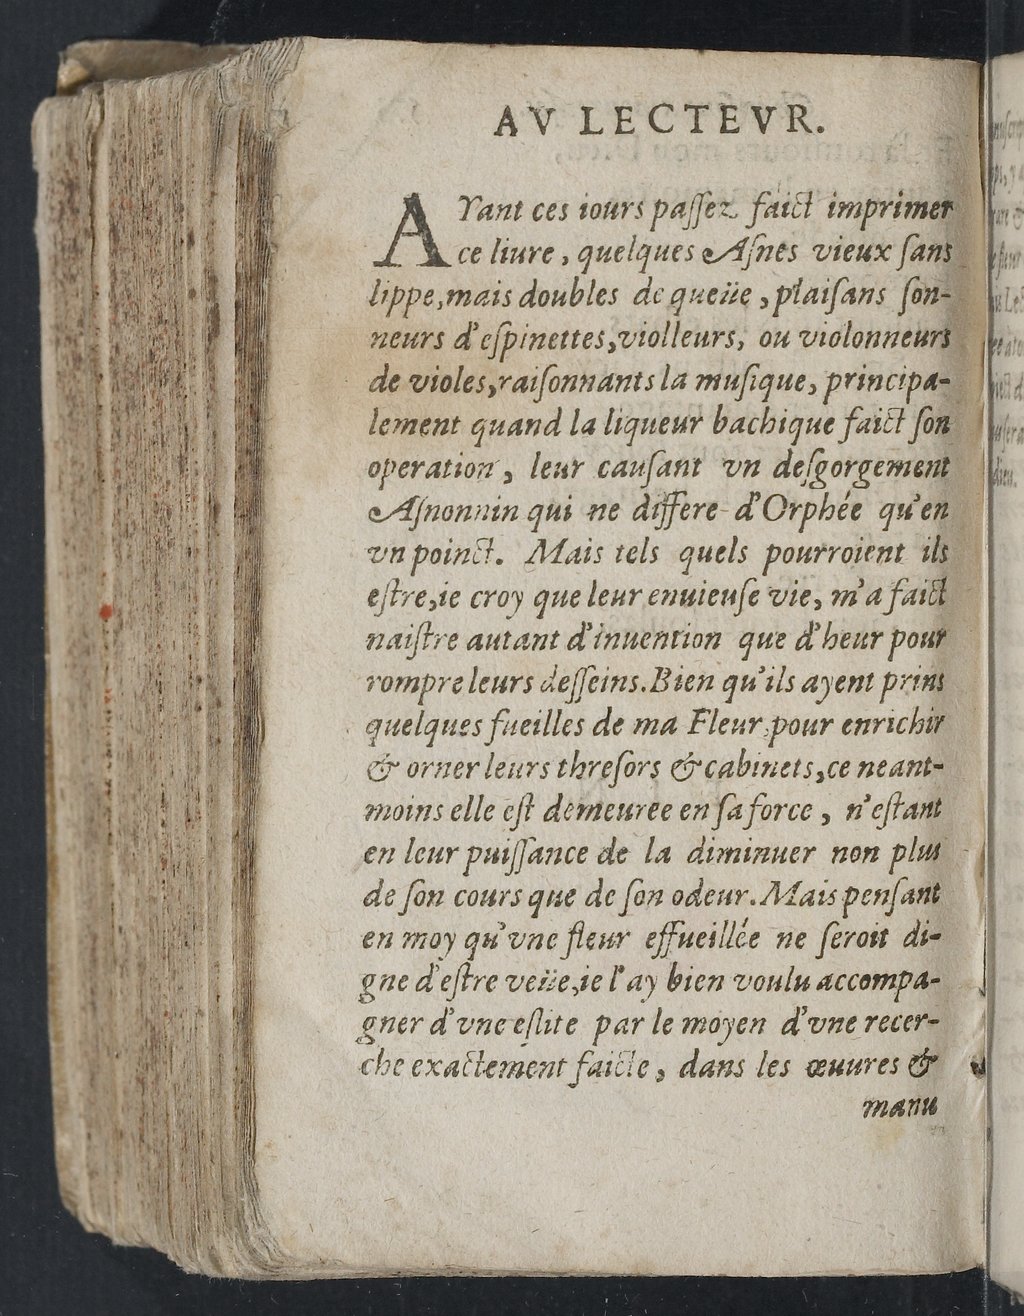 AV LECTEVR.
AYant ces iours paſſez faict imprimer
ce liure, quelques Aſnes vieux ſans
lippe, mais doubles de queüe, plaiſans ſon-
neurs d'eſpinettes, violleurs, ou violonneurs
de violes, raiſonnants la muſique, principa-
lement quand la liqueur bachique faict ſon
operation, leur cauſant vn deſgorgement
Aſnonnin qui ne differe d'Orphée qu'en
vn poinct. Mais tels quels pourroient ils
eſtre, ie croy que leur enuieuſe vie, m'a faict
naiſtre autant d'inuention que d'heur pour
rompre leurs deſſeins. Bien qu'ils ayent prins
quelques fueilles de ma Fleur, pour enrichir
& orner leurs threſors & cabinets, ce neant-
moins elle eſt demeuree en ſa force, n'eſtant
en leur puiſſance de la diminuer non plus
de ſon cours que de ſon odeur. Mais penſant
en moy qu'vne fleur effueillée ne ſeroit di-
gne d'eſtre veüe, ie l'ay bien voulu accompa-
gner d'vne eſlite par le moyen d'vne recer-
che exactement faicte, dans les œuures &
manu